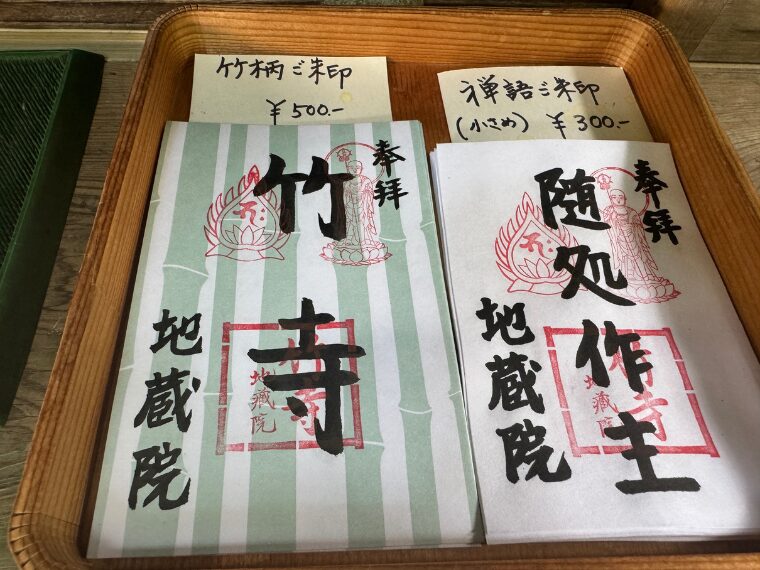 竹柄ご朱印
¥500.-
奉拝
竹寺
地蔵院
竹寺
地蔵院
禅語ご朱印
(小さめ) ¥300.-
奉拝
随処作主
地蔵院
竹寺
地蔵院